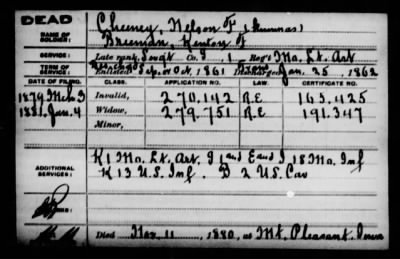 DEAD
NAME OF SOLDIER: Cheeney, Nelson F (True name)
Brennan, Kenton F
SERVICE: Late rank, Sergt Co. I, 1 Reg't Mo. Lt. Art
TERM OF SERVICE: Enlisted Sep. or Oct., 1861 Discharged Jan. 25, 1862
DATE OF FILING. CLASS. APPLICATION NO. LAW. CERTIFICATE NO.
1879 Mch 3 Invalid, 270.142 R.E. 165.425
1881 Jan. 4 Widow, 279.751 R.E. 191.347
Minor,
ADDITIONAL SERVICES: K 1 Mo. Lt. Art. I 1 and E and I 18 Mo. Inf
K 13 U.S. Inf. D 2 U.S. Cav
REMARKS:
Died Nov. 11, 1880, at Mt. Pleasant, Iowa